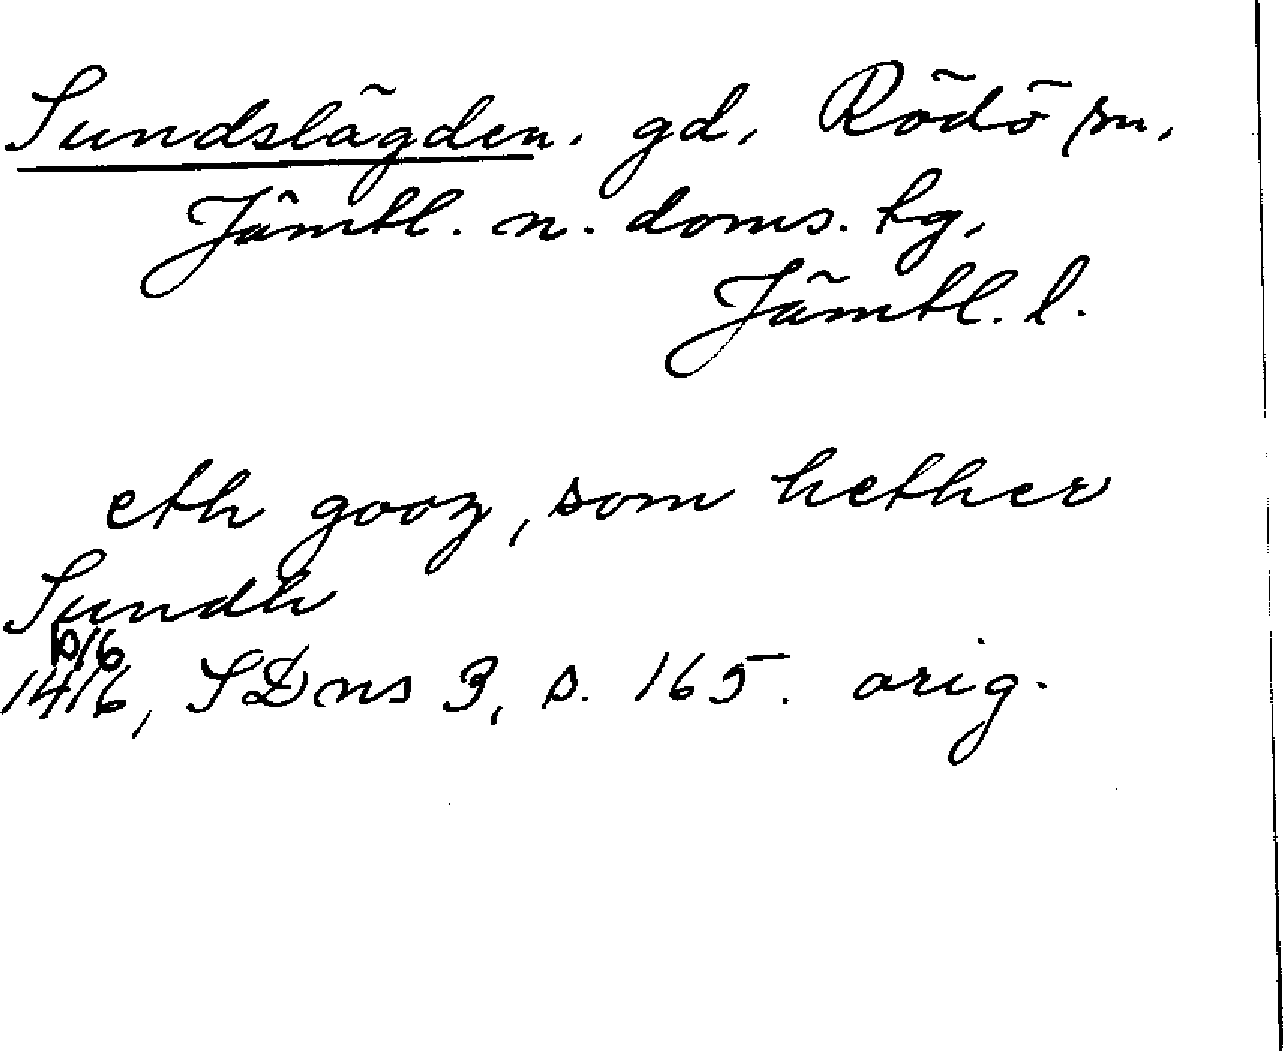 Sundslägden. gd, Rödö sn,
Jämtl. n. doms. tg,
Jämtl. l.
eth gooz, som hether
Sundh
10/6
1416, SDns 3, s. 165. orig.